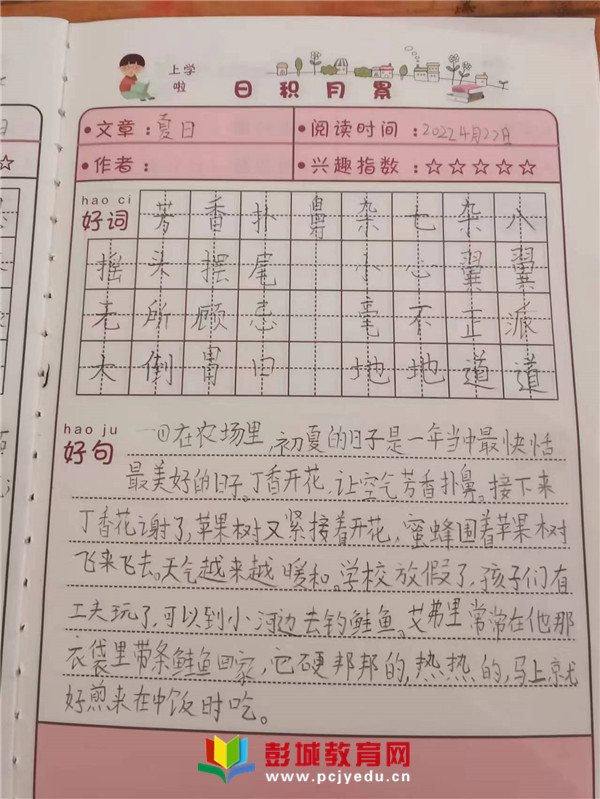 上学
啦
日积月累
•文章：夏日
•阅读时间：2022年4月27日
•作者：
•兴趣指数：☆☆☆☆☆
hao ci
好词
芳香扑鼻 杂七杂八
摇头摆尾 小心翼翼
无所顾忌 毫不正派
大倒胃口 地地道道
hao ju
好句
①在农场里,初夏的日子是一年当中最快恬
最美好的日子。丁香开花,让空气芳香扑鼻。接下来
丁香花谢了,苹果树又紧接着开花,蜜蜂围着苹果树
飞来飞去。天气越来越暖和。学校放假了,孩子们有
工夫玩了,可以到小河边去钓鲑鱼。艾弗里常常在他那
衣袋里带条鲑鱼回家,它硬邦邦的,热热的,马上就
好煎来在中饭时吃。
彭城教育网
www.pcjyedu.cn